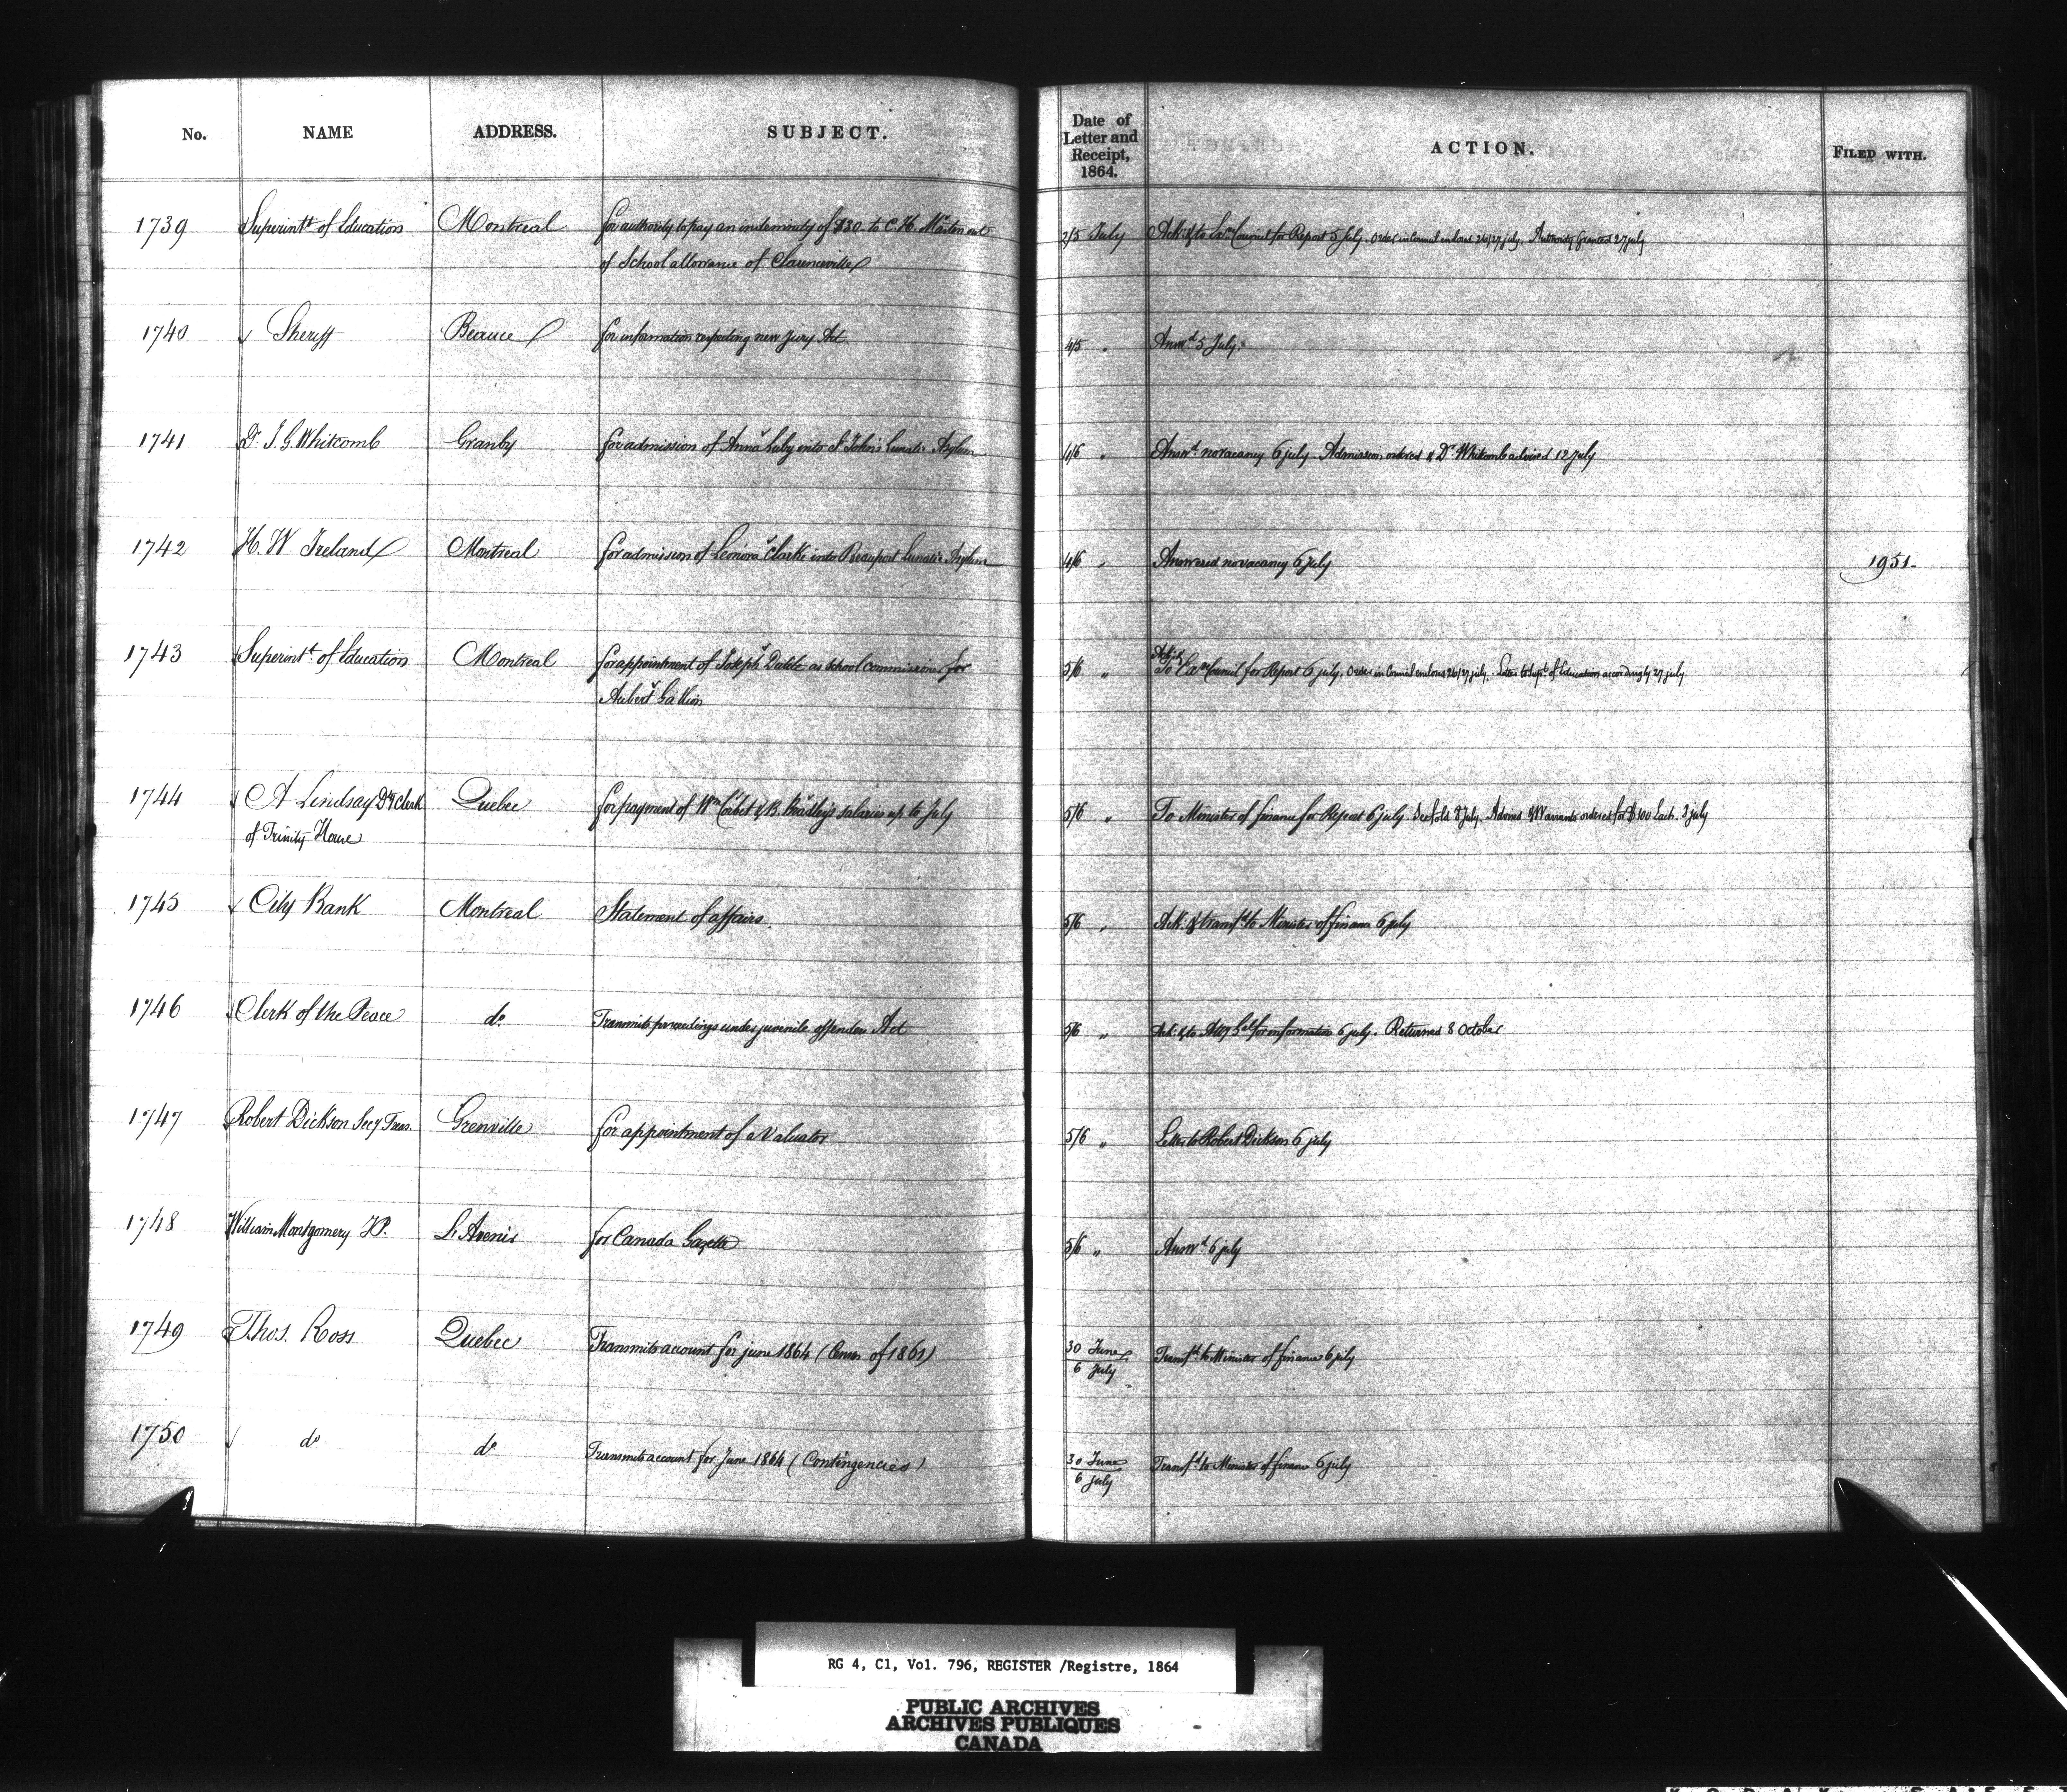 No. NAME ADDRESS. SUBJECT. Date of Letter and Receipt, 1864. ACTION. FILED WITH.
1739 Superintt of Education Montreal for authority to pay an indemnity of $30 to C. H. Martin out 2/5 July Ack. & to Council for Report 5 July. Order in Council enclosed 26/27 july. Authority Granted 27 july
of School allowance of Clarenceville
1740 Sheriff Beauce for information respecting new Jury Act 4/5 " Answd 5 July.
1741 Dr J. G. Whitcomb Granby for admission of Anna Luby into St John's Lunatic Asylum 4/6 " Answd no vacancy 6 july. Admission ordered & Dr Whitcomb advised 12 july
1742 H. W Ireland Montreal for admission of Leonora Clarke into Beauport Lunatic Asylum 4/6 " Answered no vacancy 6 july 1951.
1743 Superintt of Education Montreal for appointment of Joseph as School commissioner for 5/6 " Ack. & To Council for Report 6 july. Order in Council enclosed 26/27 july. Letter to Supt of Education accordingly 27 july
Aubert Gallion
1744 A Lindsay Dy Clerk Quebec for payment of Wm Corbet & B. Bradley's salaries up to July 5/6 " To Minister of finance for Report 6 july. 8 July. Warrants ordered for $100 Each. july
of Trinity House
1745 City Bank Montreal Statement of affairs. 5/6 " Ack. & transfd to Minister of finance 6 july
1746 Clerk of the Peace do Transmits proceedings under juvenile offenders Act 5/6 " Ack. & to Atty Gal for information 6 july. Returned 8 October
1747 Robert Dickson Secy Treas. Grenville for appointment of a Valuator 5/6 " Letter to Robert Dickson 6 july
1748 William Montgomery JP. L'Avenir for Canada Gazette 5/6 " Answd 6 july
1749 Thos. Ross Quebec Transmits account for june 1864 (Census of 1861) 30 June / 6 July Transfd to Minister of finance 6 july
1750 do do Transmits account for June 1864 (Contingencies) 30 June / 6 July Transfd to Minister of finance 6 july
RG 4, C1, Vol. 796, REGISTER /Registre, 1864
PUBLIC ARCHIVES
ARCHIVES PUBLIQUES
CANADA